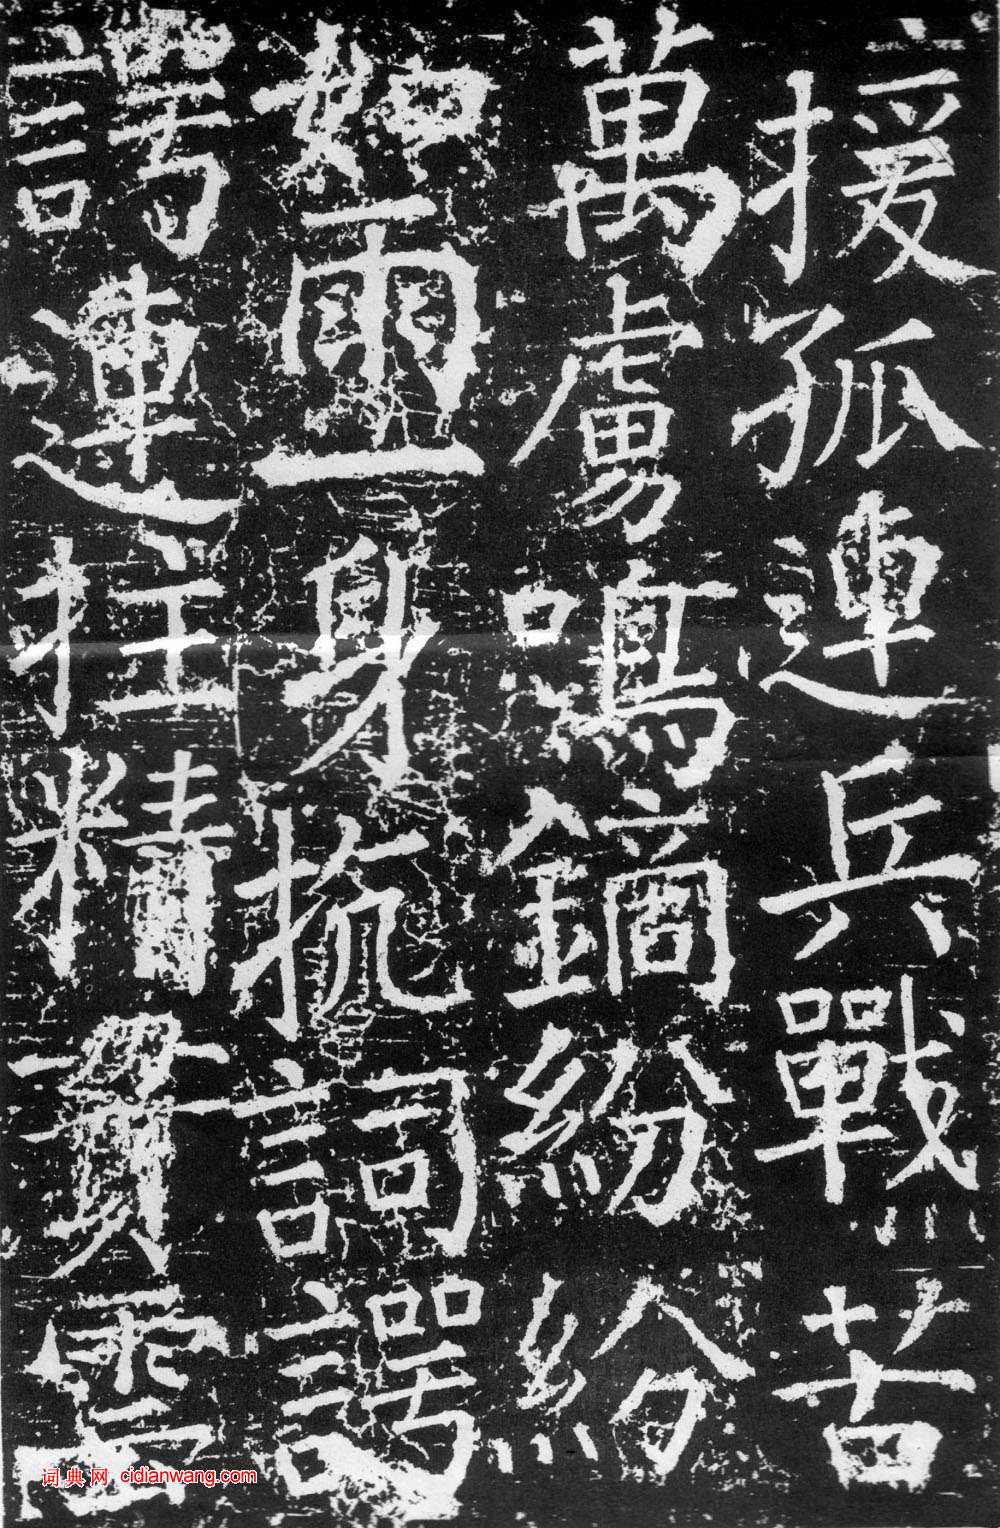 援孤連兵戰苦
萬虜鳴鏑紛紛
如雨一身抗詞諤
諤連拄精貫雲
词典网 cidianwang.com